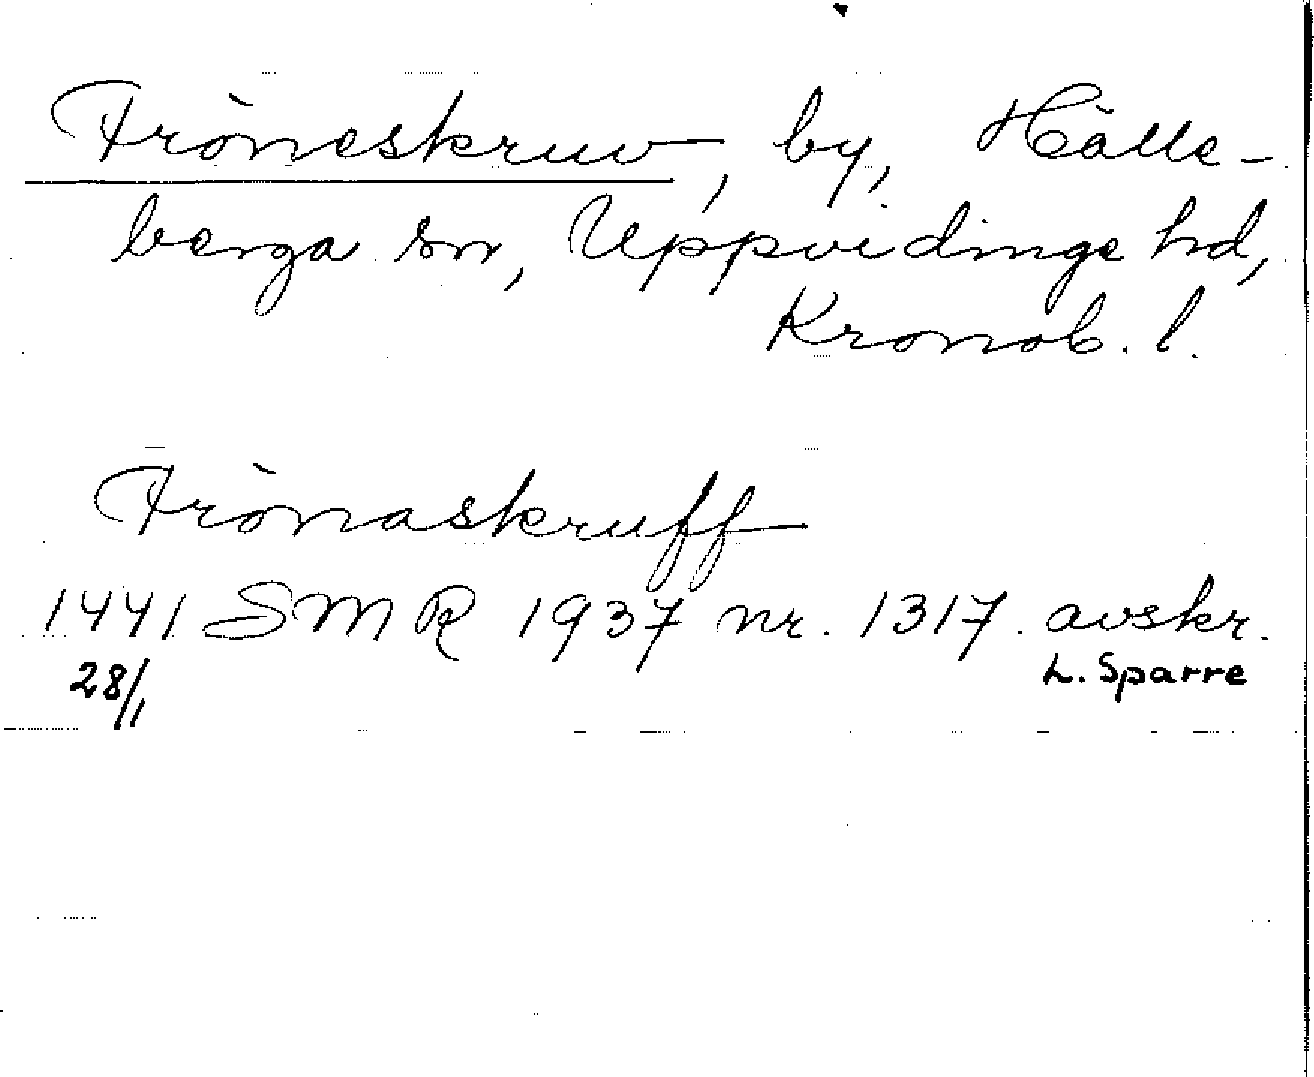 Fröneskruv, by, Hälle-
berga sn, Uppvidinge hd,
Kronob. l.
Frönaskruff
1441 SMR 1937 nr. 1317. avskr.
28/1 L. Sparre